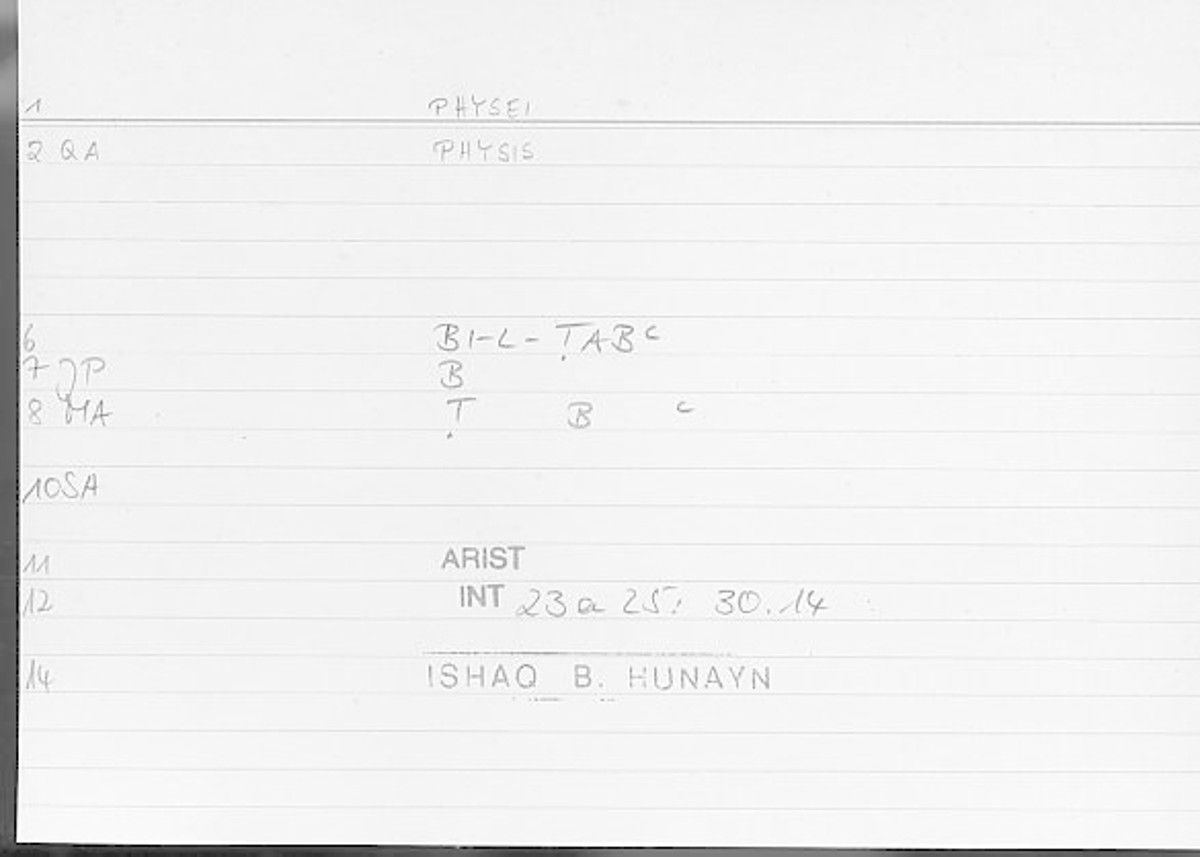 1 PHYSEI
2 QA PHYSIS
6 BI-L-ṬABᶜ
7 JP B
8 MA Ṭ B ᶜ
10SA
11 ARIST
12 INT 23a25; 30.14
14 ISHAQ B. HUNAYN